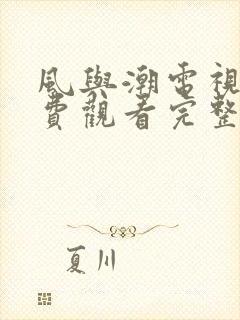 風與潮電視
費觀看完整
夏川